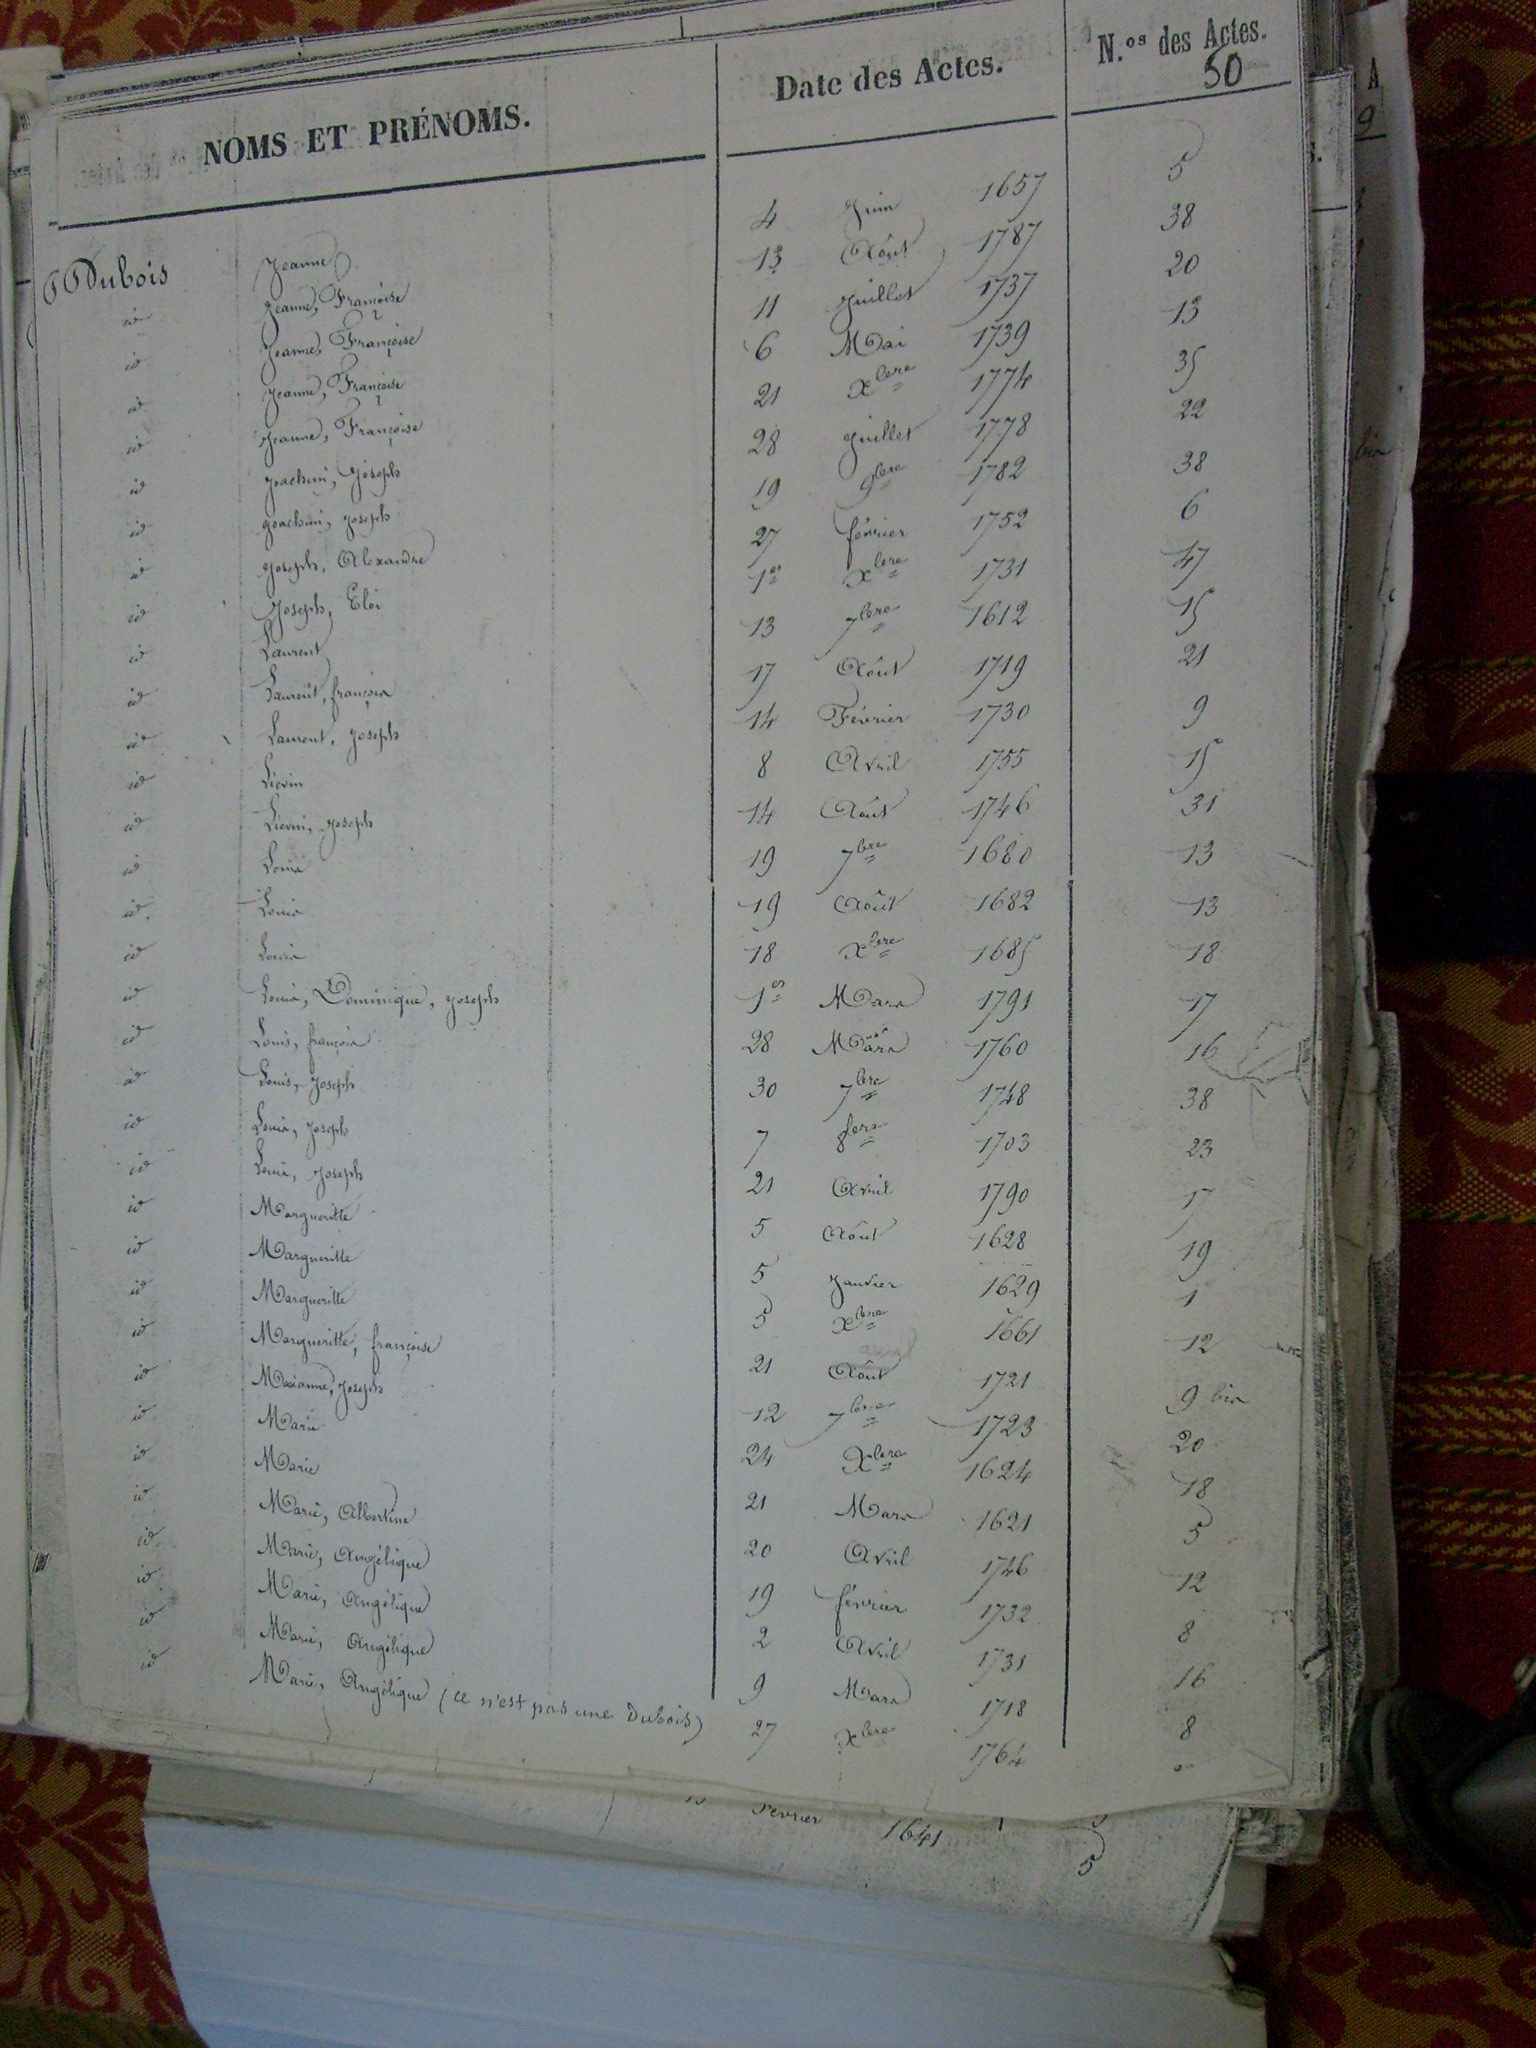 NOMS ET PRÉNOMS. Date des Actes. N.os des Actes.
50
Dubois Jeanne 4 Juin 1657 5
id Jeanne, Françoise 13 Août 1787 38
id Jeanne, Françoise 11 Juillet 1737 20
id Jeanne, Françoise 6 Mai 1739 13
id Jeanne, Françoise 21 Xbre 1774 35
id Joachim, Joseph 28 Juillet 1778 22
id Joachim, Joseph 19 9bre 1782 38
id Joseph, Alexandre 27 février 1752 6
id Joseph, Eloi 1er Xbre 1731 47
id Laurent 13 7bre 1612 15
id Laurent, françois 17 Août 1719 21
id Laurent, Joseph 14 Février 1730 9
id Liévin 8 Avril 1755 15
id Liévin, Joseph 14 Août 1746 31
id Louis 19 7bre 1680 13
id Louis 19 Août 1682 13
id Louis 18 Xbre 1685 18
id Louis, Dominique, Joseph 1er Mars 1791 17
id Louis, françois 28 Mars 1760 16
id Louis, Joseph 30 7bre 1748 38
id Louis, Joseph 7 8bre 1703 23
id Louis, Joseph 21 Avril 1790 17
id Margueritte 5 Août 1628 19
id Margueritte 5 Janvier 1629 1
id Margueritte 5 Xbre 1661 12
avril
id Margueritte, françoise 21 Août 1721 9 bis
id Marianne, Joseph 12 7bre 1723 20
id Marie 24 Xbre 1624 18
id Marie 21 Mars 1621 5
id Marie, Albertine 20 Avril 1746 12
id Marie, Angélique 19 février 1732 8
id Marie, Angélique 2 Avril 1731 16
id Marie, Angélique 9 Mars 1718 8
id Marie, Angélique (ce n'est pas une Dubois) 27 Xbre 1764 "
Février 1641 5